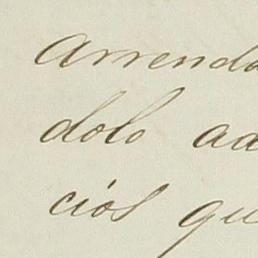 Arrenda
dolo ad
cios qu